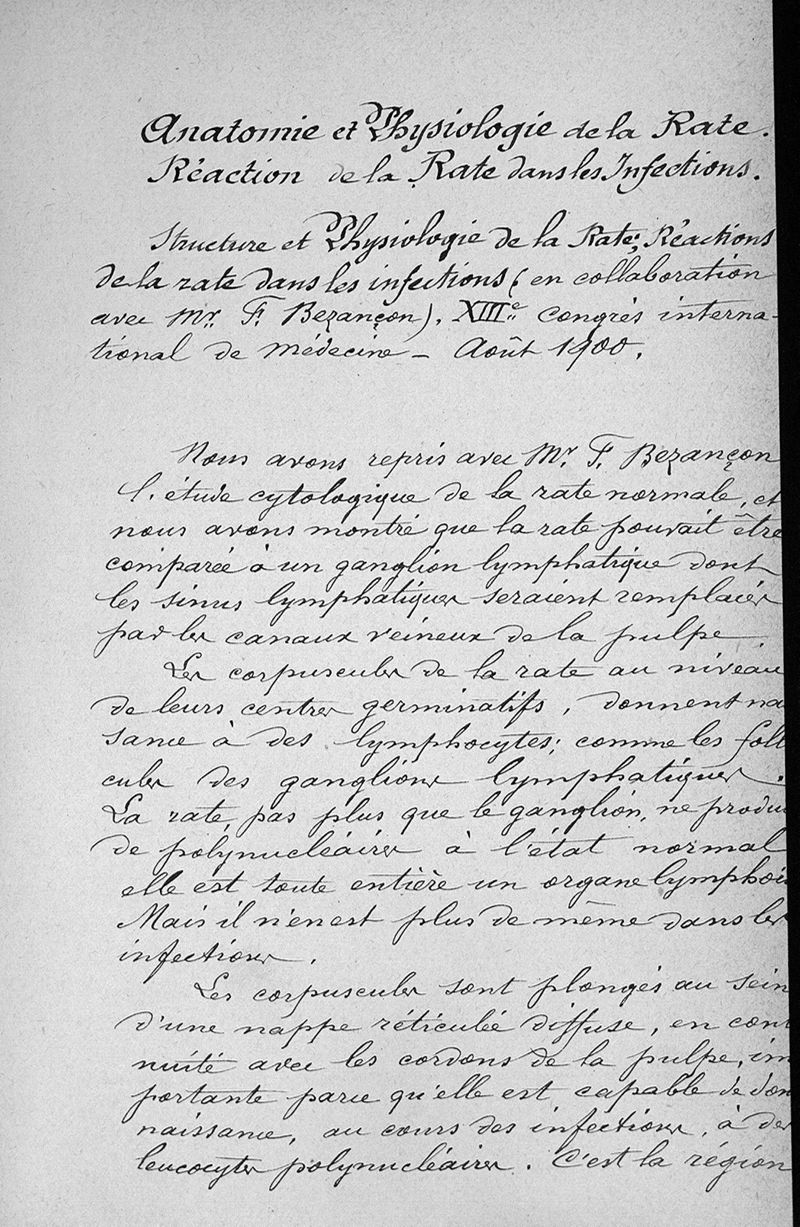 Anatomie et Physiologie de la Rate.
Réaction de la Rate dans les Infections.
Structure et Physiologie de la Rate; Réactions
de la rate dans les infections (en collaboration
avec Mr. F. Bezançon). XIIIe Congrès interna-
tional de Médecine – Août 1900.
Nous avons repris avec Mr F. Bezançon
l'étude cytologique de la rate normale, et
nous avons montré que la rate pouvait être
comparée à un ganglion lymphatique dont
les sinus lymphatiques seraient remplacés
par les canaux veineux de la pulpe.
Les corpuscules de la rate au niveau
de leurs centres germinatifs, donnent na
sance à des lymphocytes; comme les foll
cules des ganglions lymphatiques.
La rate, pas plus que le ganglion, ne produi
de polynucléaires à l'état normal
elle est toute entière un organe lymphoï
Mais il n'en est plus de même dans les
infections.
Les corpuscules sont plongés au sein
d'une nappe réticulée diffuse, en cont
nuité avec les cordons de la pulpe, im
portante parce qu'elle est capable de don
naissance, au cours des infections, à des
leucocytes polynucléaires. C'est la région